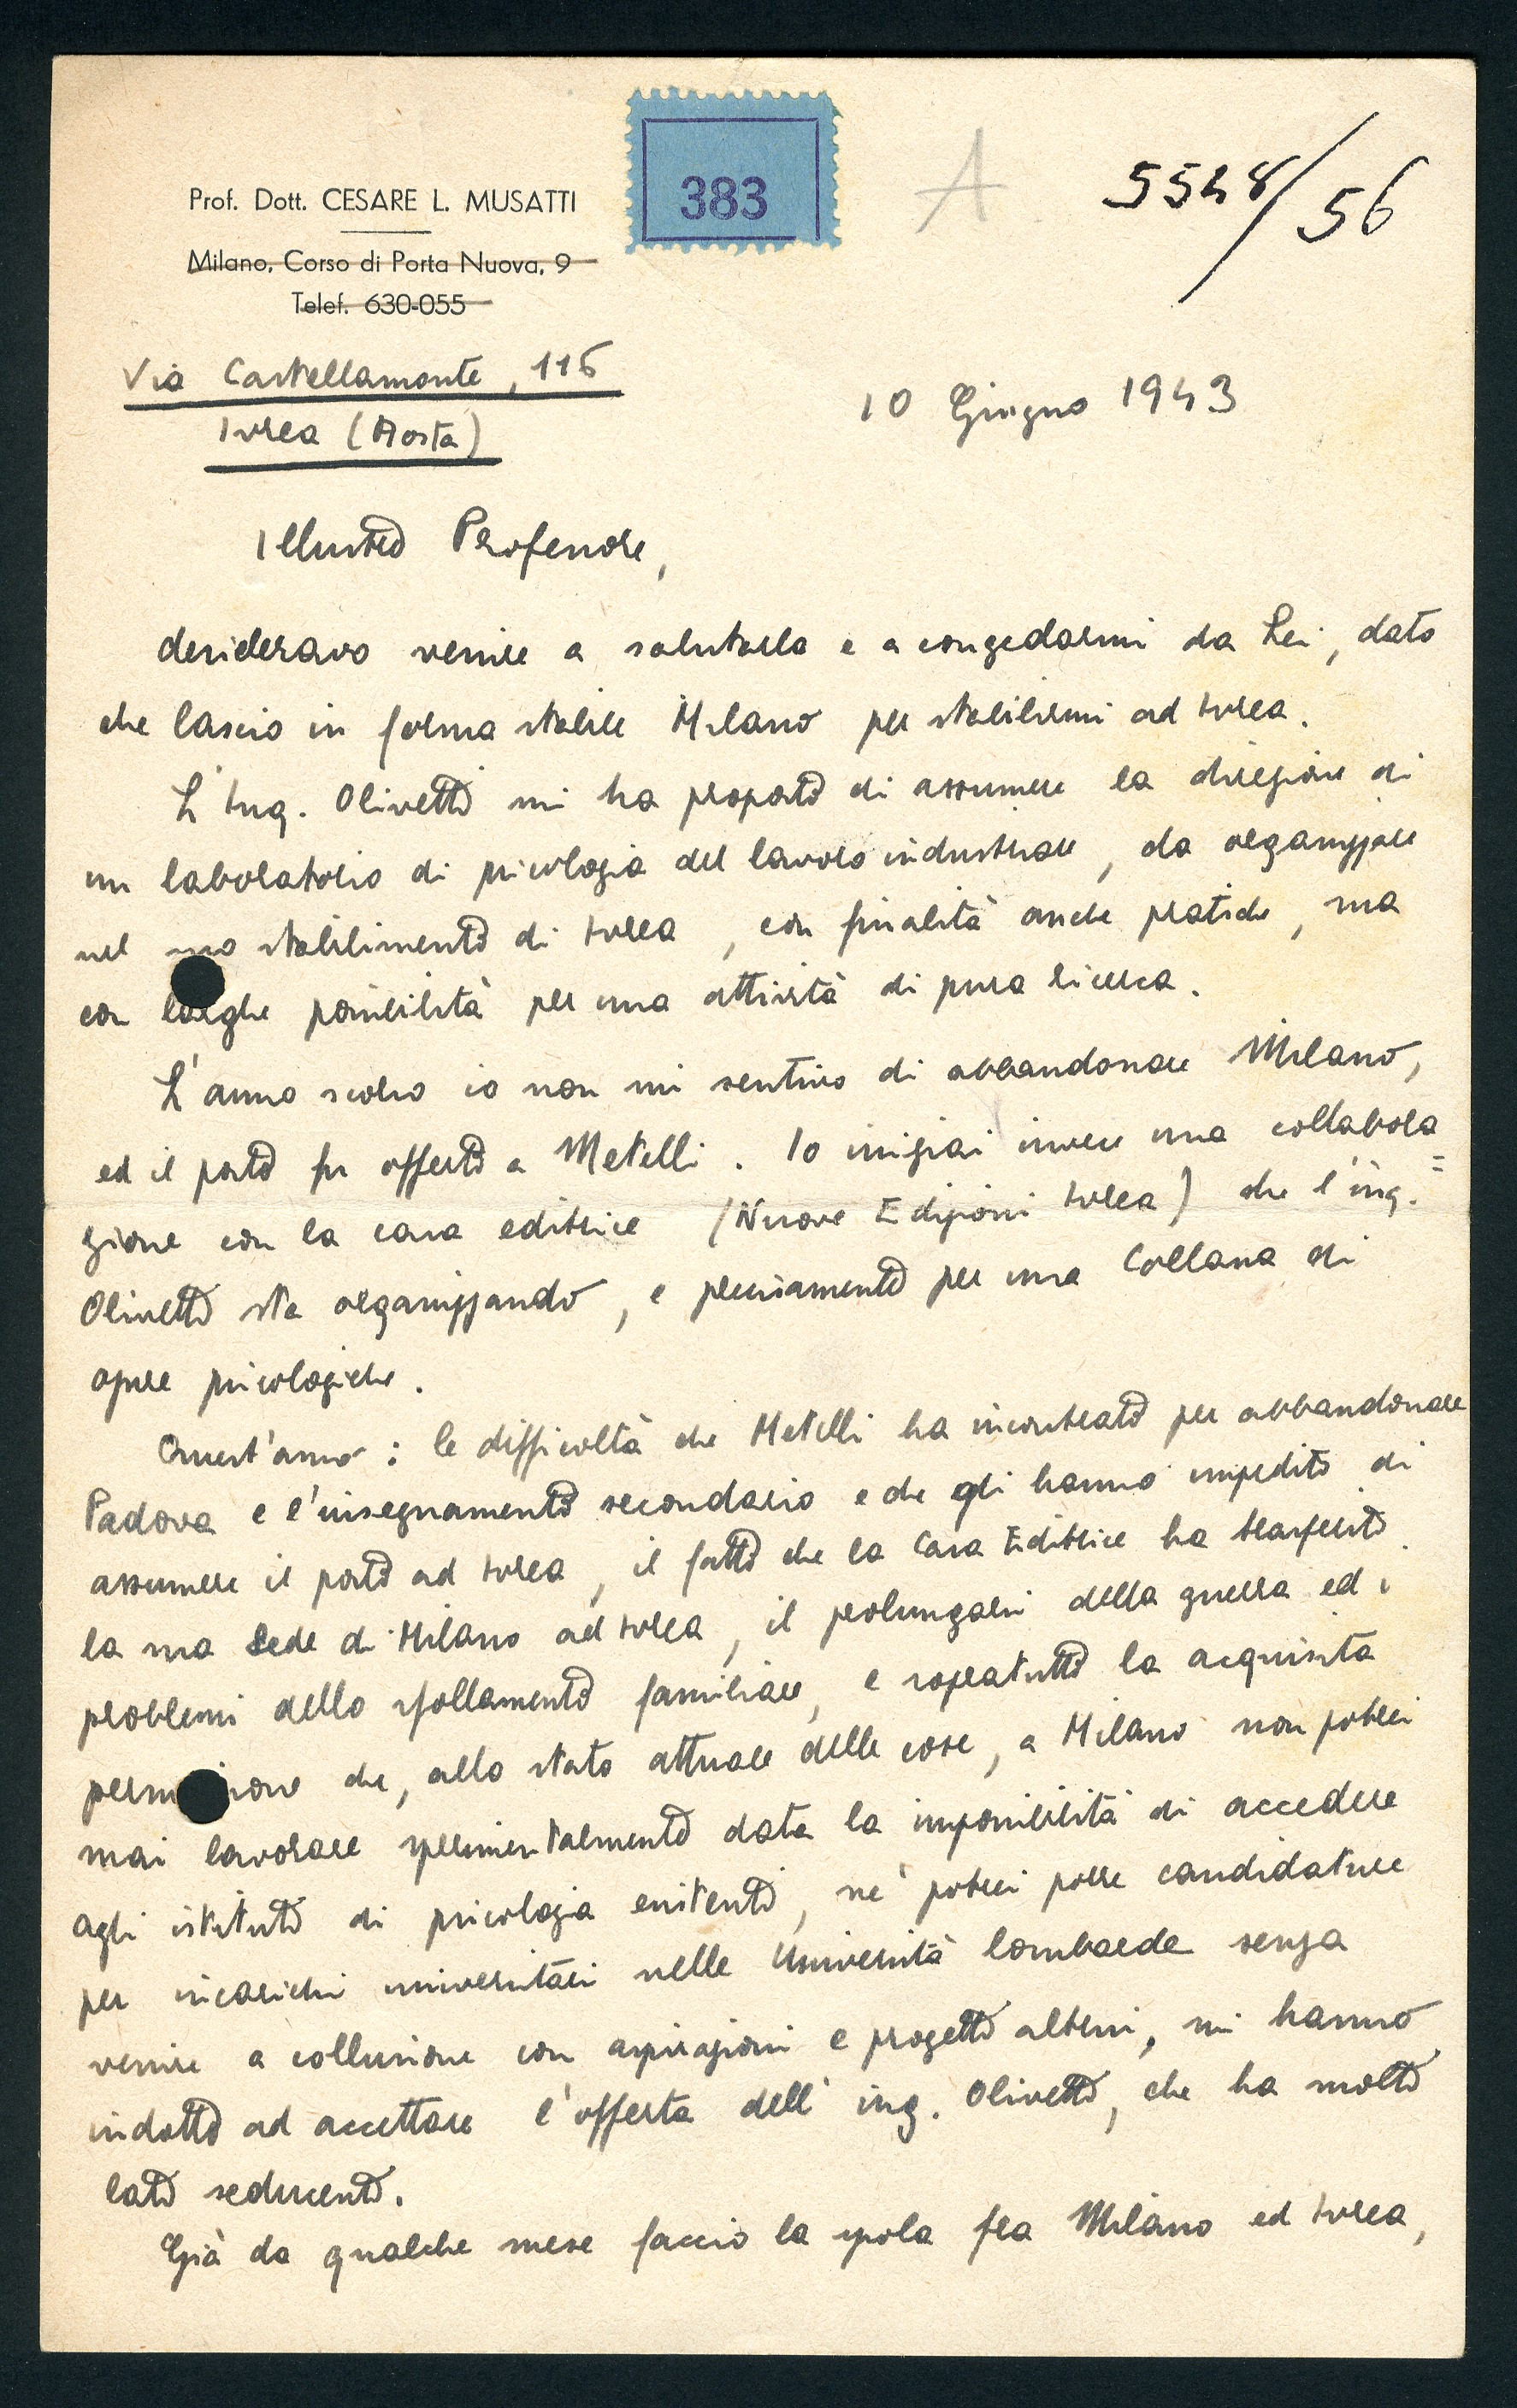 383
A
5548/56
Prof. Dott. CESARE L. MUSATTI
Milano, Corso di Porta Nuova, 9
Telef. 630-055
Via Castellamonte, 116
Ivrea (Aosta)
10 Giugno 1943
Illustre Professore,
desideravo venire a salutarla e a congedarmi da Lei, dato
che lascio in forma stabile Milano per stabilirmi ad Ivrea.
L'Ing. Olivetti mi ha proposto di assumere la direzione di
un laboratorio di psicologia del lavoro industriale, da organizzare
nel suo stabilimento di Ivrea, con finalità anche pratiche, ma
con larghe possibilità per una attività di pura ricerca.
L'anno scorso io non mi sentivo di abbandonare Milano,
ed il posto fu offerto a Metelli. Io iniziai invece una collabora=
zione con la casa editrice (Nuove Edizioni Ivrea) che l'ing.
Olivetti sta organizzando, e precisamente per una Collana di
opere psicologiche.
Quest'anno: le difficoltà che Metelli ha incontrato per abbandonare
Padova e l'insegnamento secondario e che gli hanno impedito di
assumere il posto ad Ivrea, il fatto che la Casa Editrice ha trasferito
la sua Sede di Milano ad Ivrea, il prolungarsi della guerra ed i
problemi dello sfollamento familiare, e sopratutto la acquisita
persuasione che, allo stato attuale delle cose, a Milano non potrei
mai lavorare sperimentalmente data la impossibilità di accedere
agli istituti di psicologia esistenti, nè potrei porre candidature
per incarichi universitari nelle Università lombarde senza
venire a collusione con aspirazioni e progetti altrui, mi hanno
indotto ad accettare l'offerta dell'ing. Olivetti, che ha molti
lati seducenti.
Già da qualche mese faccio la spola fra Milano ed Ivrea,